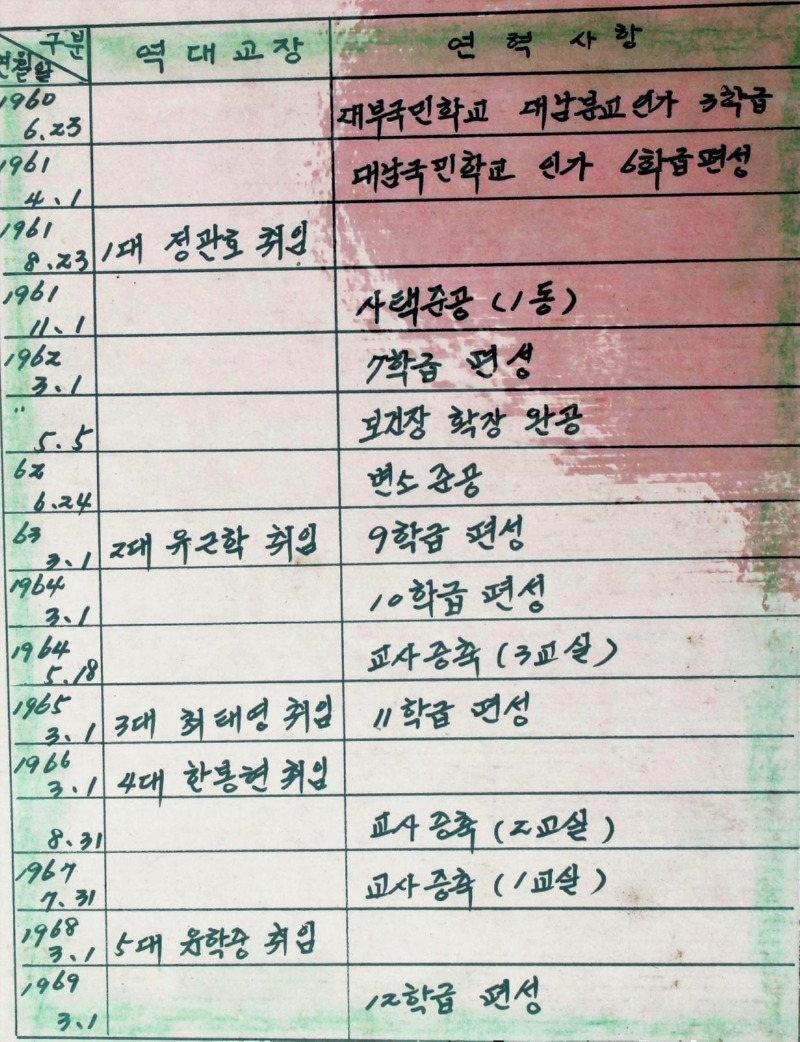 구분 역대교장 연혁사항
연월일
1960
6.23 대부국민학교 대남분교인가 3학급
1961
4.1 대남국민학교 인가 6학급편성
1961
8.23 1대 정관호 취임
1961
11.1 사택준공 (1동)
1962
3.1 7학급 편성
〃
5.5 학장 완공
62
6.24 변소 준공
63
3.1 2대 유근학 취임 9학급 편성
1964
3.1 10학급 편성
1964
5.18 교사증축 (3교실)
1965
3.1 3대 최태영 취임 11학급 편성
1966
3.1 4대 한봉현 취임
8.31 교사증축 (2교실)
1967
7.31 교사증축 (1교실)
1968
3.1 5대 취임
1969
3.1 12학급 편성